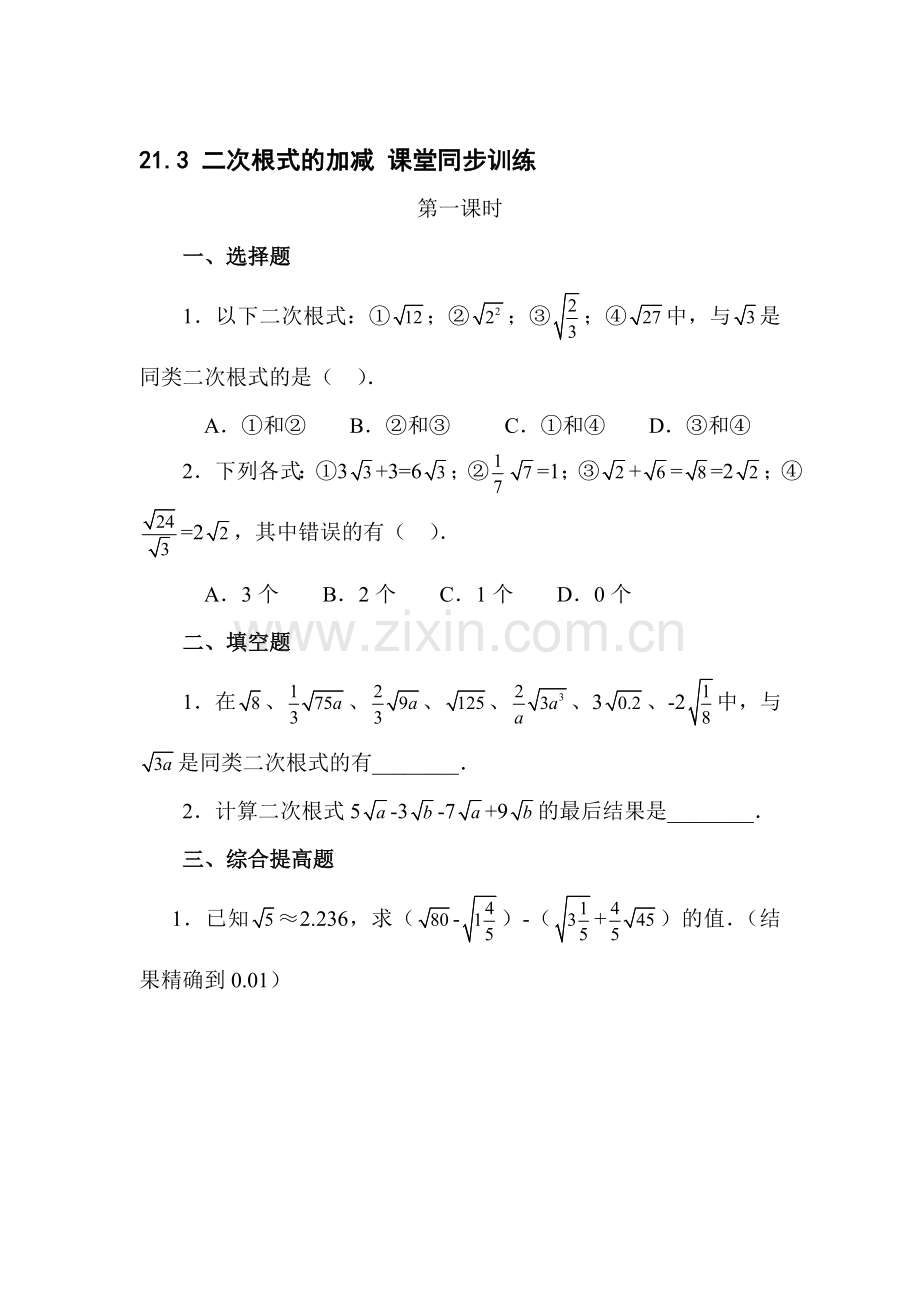 21.3 二次根式的加减 课堂同步训练
第一课时
一、选择题
1．以下二次根式：①√12；②√2²；③√(2/3)；④√27中，与√3是
同类二次根式的是（　）．
A．①和②　B．②和③　C．①和④　D．③和④
2．下列各式：①3√3+3=6√3；②1/7 √7=1；③√2+√6=√8=2√2；④
√24/√3=2√2，其中错误的有（　）．
A．3个　B．2个　C．1个　D．0个
www.zixin.com.cn
二、填空题
1．在√8、1/3 √75a、2/3 √9a、√125、2/a √3a³、3√0.2、-2√(1/8)中，与
√3a是同类二次根式的有________．
2．计算二次根式5√a-3√b-7√a+9√b的最后结果是________．
三、综合提高题
1．已知√5≈2.236，求（√80-√(1 4/5)）-（√(3 1/5)+4/5 √45）的值．（结
果精确到0.01）